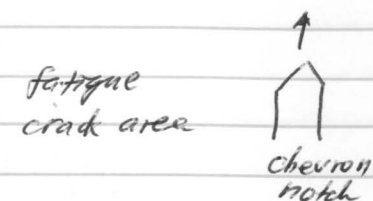 fatigue
crack area
chevron
notch